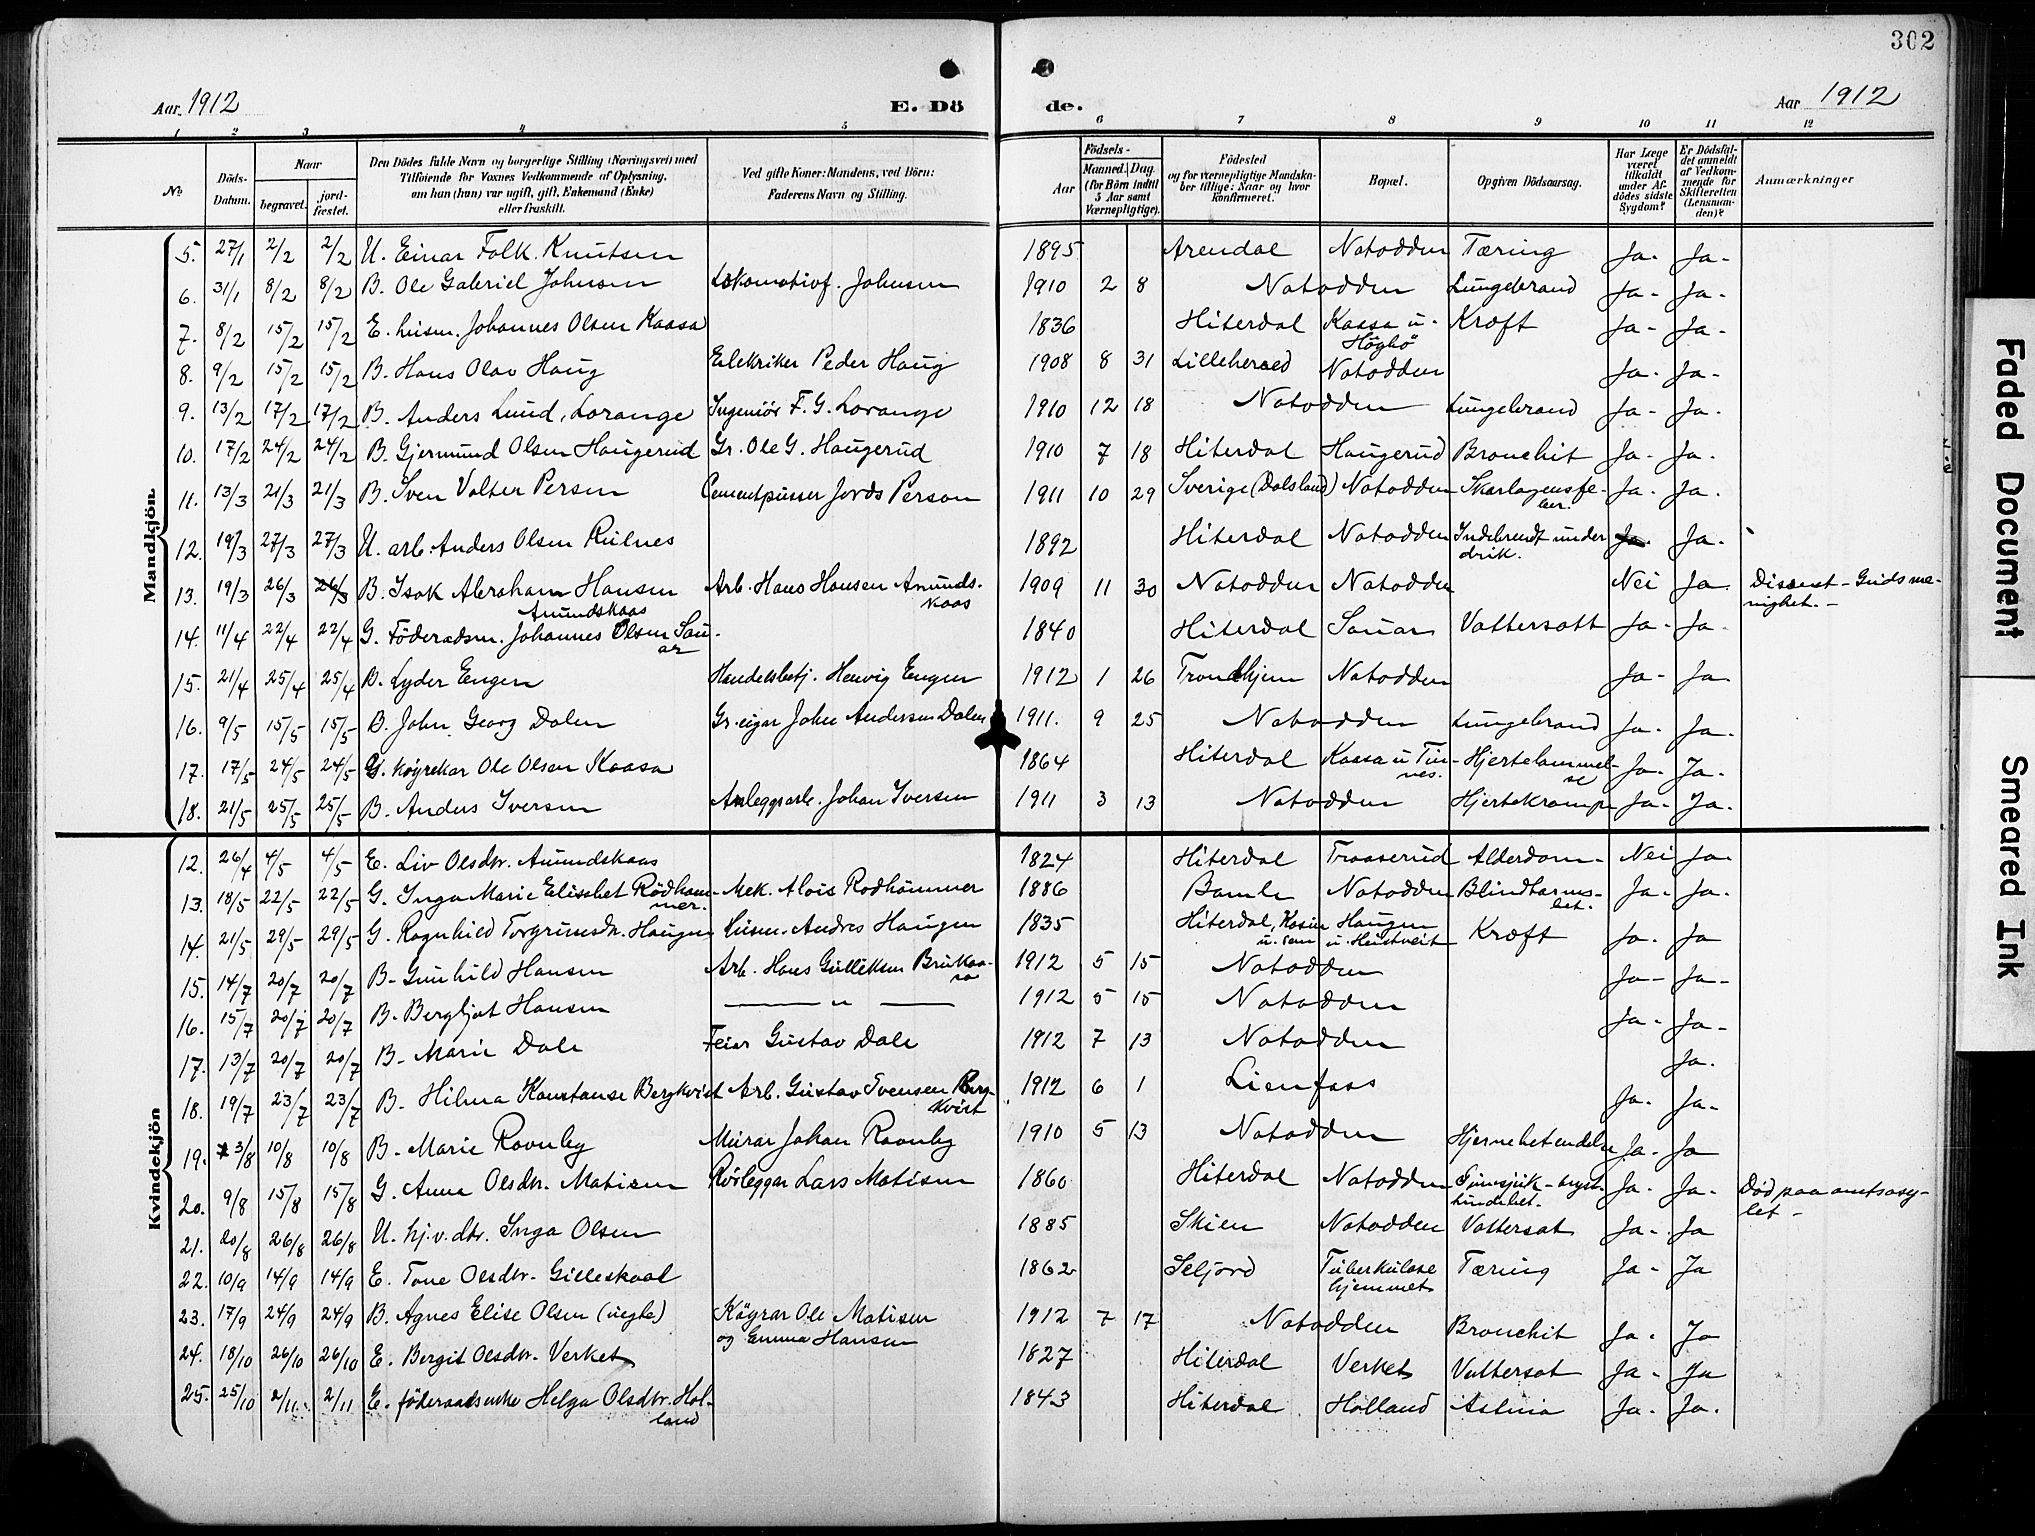 302
Aar 1912
E. Dö
de.
Aar 1912
1 2 3 4 5 6 7 8 9 10 11 12
No
Döds-Datum.
Naar
begravet.
jord-fæstet.
Den Dödes fulde Navn og borgerlige Stilling (Næringsvei) med
Tilföiende for Voxnes Vedkommende af Oplysning,
om han (hun) var ugift, gift, Enkemand (Enke)
eller fraskilt.
Ved gifte Koner: Mandens, ved Börn:
Faderens Navn og Stilling.
Födsels-
Aar
Maaned. Dag.
(for Börn indtil
5 Aar samt
Værnepligtige).
Födested
og for værnepligtige Mandskaber tillige: Naar og hvor
konfirmeret.
Bopæl.
Opgiven Dödsaarsag.
Har Læge været tilkaldt under Afdödes sidste Sygdom?
Er Dödsfaldet anmeldt af Vedkommende for Skifteretten (Lensmanden)?
Anmærkninger
Mandkjön
5. 27/1 2/2 2/2 U. Einar Falk Knutsen 1895 Arendal Notodden Tæring Ja- Ja-
6. 31/1 8/2 8/2 B. Ole Gabriel Johnsen Lokomotivf. Johnsen 1910 2 8 Notodden Lungebrand Ja- Ja-
7. 8/2 15/2 15/2 E. husm. Johannes Olsen Kaasa 1836 Hiterdal Kaasa u- Högbö Kræft Ja- Ja-
8. 9/2 15/2 15/2 B. Hans Olav Haug Eilektriker Peder Haug 1908 8 31 Lilleherred Notodden Ja- Ja-
9. 13/2 17/2 17/2 B. Anders Lund Lorange Ingeniör F. G. Lorange 1910 12 18 Notodden Lungebrand Ja- Ja-
10. 17/2 24/2 24/2 B. Gjermund Olsen Haugerud Gr. Ole G. Haugerud 1910 7 18 Hiterdal Haugerud Bronchit Ja- Ja-
11. 13/3 21/3 21/3 B. Sven Valter Persen Cementpusser Person 1911 10 29 Sverige (Dalsland) Notodden Skarlagensfeber. Ja- Ja-
12. 19/3 27/3 27/3 U. arb. Anders Olsen 1892 Hiterdal Notodden Indebrendt under drik. Ja-
13. 19/3 26/3 26/3 B. Isak Abraham Hansen Amundskaas Arb. Hans Hansen Amundskaas 1909 11 30 Notodden Notodden Nei Ja Dissent- Guds menighet.-
14. 11/4 22/4 22/4 G. Föderadsm. Johannes Olsen Sauar 1840 Hiterdal Sauar Vattersott Ja- Ja-
15. 21/4 25/4 25/4 B. Lyder Engen Handelsbetj. Engen 1912 1 26 Trondhjem Notodden Ja- Ja
16. 9/5 15/5 15/5 B. John Georg Dalen Gr. eigar John Andersen Dalen 1911. 9 25 Notodden Lungebrand Ja- Ja-
17. 17/5 24/5 24/5 G. köyrekar Ole Olsen Kaasa 1864 Hiterdal Kaasa u Tinnes. Hjertelammelse Ja- Ja-
18. 21/5 25/5 25/5 B. Anders Iversen Anleggsarb. Johan Iversen 1911 3 13 Notodden Hjertekrampe Ja- Ja-
Kvindekjön
12. 26/4 4/5 4/5 E. Liv Olsdtr. Amundskaas 1824 Hiterdal Traaserud Alderdom- Nei Ja-
13. 18/5 22/5 22/5 G. Inga Marie Elisabet Rödhammer. Mek. Alois Rodhammer 1886 Bamle Notodden Blindtarmsbet. Ja- Ja-
14. 21/5 29/5 29/5 G. Ragnhild Torgrimsdtr. Haugen Husm. Andres Haugen 1835 Hiterdal, Haugen u. Heistveit Kræft Ja- Ja
15. 14/7 20/7 20/7 B- Gunhild Hansen Arb. Hans Gulliksen Brukaasa 1912 5 15 Notodden Ja- Ja-
16. 15/7 20/7 20/7 B. Bergljot Hansen —— " —— 1912 5 15 Notodden Ja- Ja-
17. 13/7 20/7 20/7 B- Marie Dale Feiar Gustav Dale 1912 7 13 Notodden Ja-
18. 19/7 23/7 23/7 B- Hilma Konstanse Bergkvist Arb. Gustav Svensen Bergkvist 1912 6 1 Lienfoss Ja- Ja-
19. 3/8 10/8 10/8 B- Marie Ravnby Murar Johan Ravnby 1910 5 13 Notodden Hjernebetendelse Ja- Ja
20. 9/8 15/8 15/8 G. Anna Olsdtr. Matisen Rörleggar Lars Matisen 1860 Hiterdal Notodden Sinnsjuk- brysthindebet. Ja- Ja- Död paa amtsasylet-
21. 20/8 26/8 26/8 U. hj. v. dtr. Inga Olsen 1885 Skien Notodden Vattersot Ja- Ja
22. 10/9 14/9 14/9 E. Tone Olsdtr. Gilleskaal 1862 Seljord Tuberkulosehjemmet Tæring Ja- Ja
23. 17/9 24/9 24/9 B. Agnes Elise Olsen (uegte) Köyrar Ole Matisen og Emma Hansen 1912 7 17 Notodden Bronchit Ja- Ja
24. 18/10 26/10 26/10 E. Bergit Olsdtr. Verket 1827 Hiterdal Verket Vattersot Ja- Ja
25. 25/10 2/11 2/11 E. föderaadsenke Helga Olsdtr. Holland 1843 Hiterdal Holland Astma Ja- Ja.
Faded Document
Smeared Ink